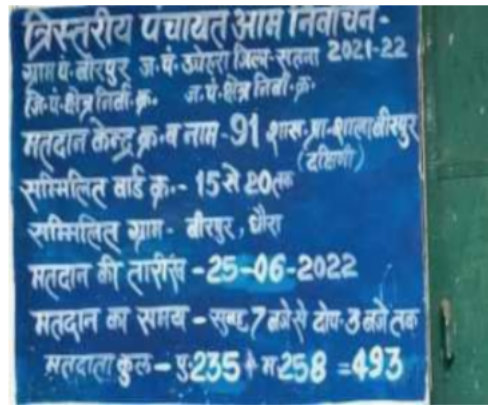 त्रिस्तरीय पंचायत आम निर्वाचन-
ग्राम पं. बीरपुर ज.पं. उचेहरा जिला-सतना 2021-22
जि.पं. क्षेत्र निर्वा. क्र. ज.पं. क्षेत्र निर्वा. क्र.
मतदान केन्द्र क्र. व नाम - 91 शास. प्रा. शाला बीरपुर
(दक्षिणी)
सम्मिलित वार्ड क्र.- 15 से 20 तक
सम्मिलित ग्राम- बीरपुर, धौरा
मतदान की तारीख -25-06-2022
मतदान का समय - सुबह 7 बजे से दोप. 3 बजे तक
मतदाता कुल - पु. 235 + म. 258 = 493